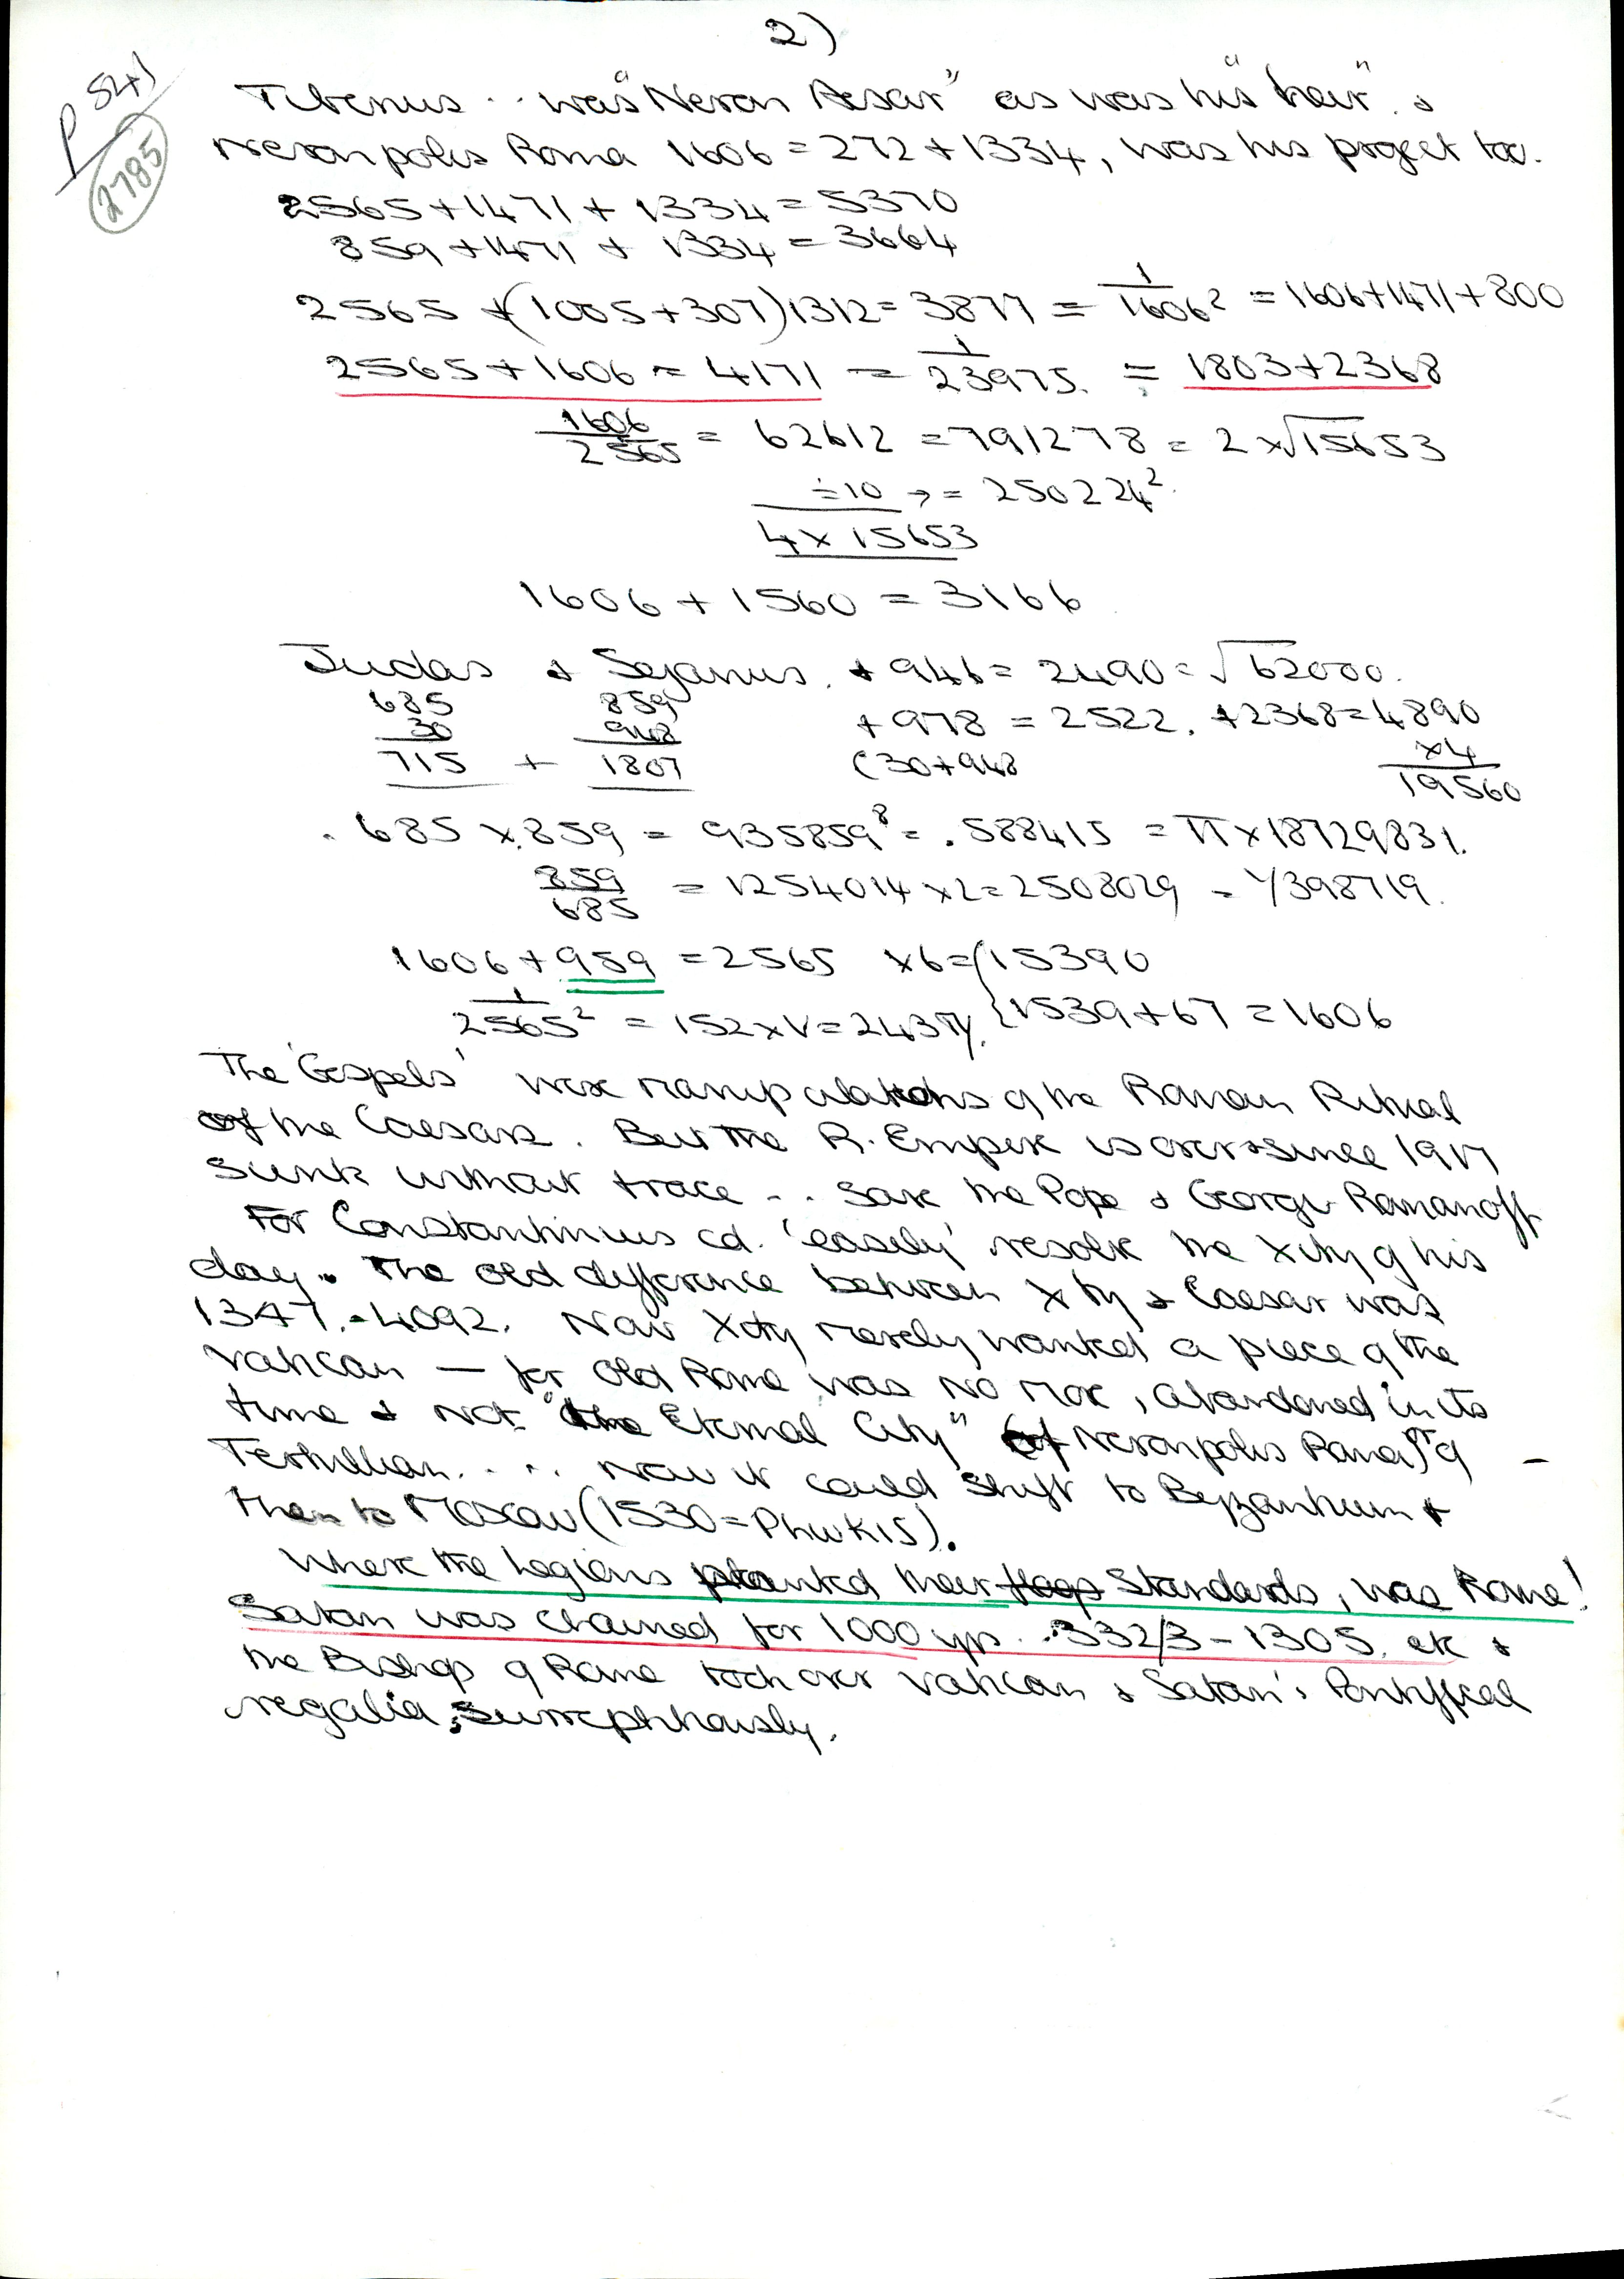 2)
P 841
2785
Tiberius .. was "Neron Kesar" as was his "heir" &
Neronpolis Roma 1606 = 272 + 1334, was his project too.
2565 + 1471 + 1334 = 5370
859 + 1471 + 1334 = 3664
2565 + (1005 + 307) 1312 = 3877 = 1/1606² = 1606 + 1471 + 800
2565 + 1606 = 4171 = 1/23975. = 1803 + 2368
1606/2565 = 62612 = 791278 = 2 x √15653
÷10 → = 250224²
4 x 15653
1606 + 1560 = 3166
Judas & Sejanus. + 946 = 2490 = √62000.
685 859 + 978 = 2522. + 2368 = 4890
30 948 (30 + 948 x4
715 + 1807 19560
.685 x .859 = 935859⁸ = .588415 = π x 18729831.
859/685 = 1254014 x 2 = 2508029 = 1/398719.
1606 + 959 = 2565 x 6 = { 15390
1/2565² = 152 x V = 243π/. { 1539 + 67 = 1606
The 'Gospels' were manipulations of the Roman Ritual
of the Caesars. But the R. Empire is over & since 1917
sunk without trace ... save the Pope & George Romanoff
For Constantinius cd. 'easily' resolve the Xity of his
day. The old difference between Xty & Caesar was
1347. = 4092. Now Xity merely wanted a piece of the
Vatican — for Old Rome was no more, abandoned in its
time & not "the Eternal City" (of Neronpolis Roma) of
Tertullian. ... Now it could shift to Byzantium &
then to Moscow (1530 = PhwKIS).
Where the Legions planted their flags Standards, was Rome!
Satan was chained for 1000 yrs. .. 332/3 - 1305. etc &
the Bishop of Rome took over Vatican & Satan's Pontifical
regalia, surreptitiously.